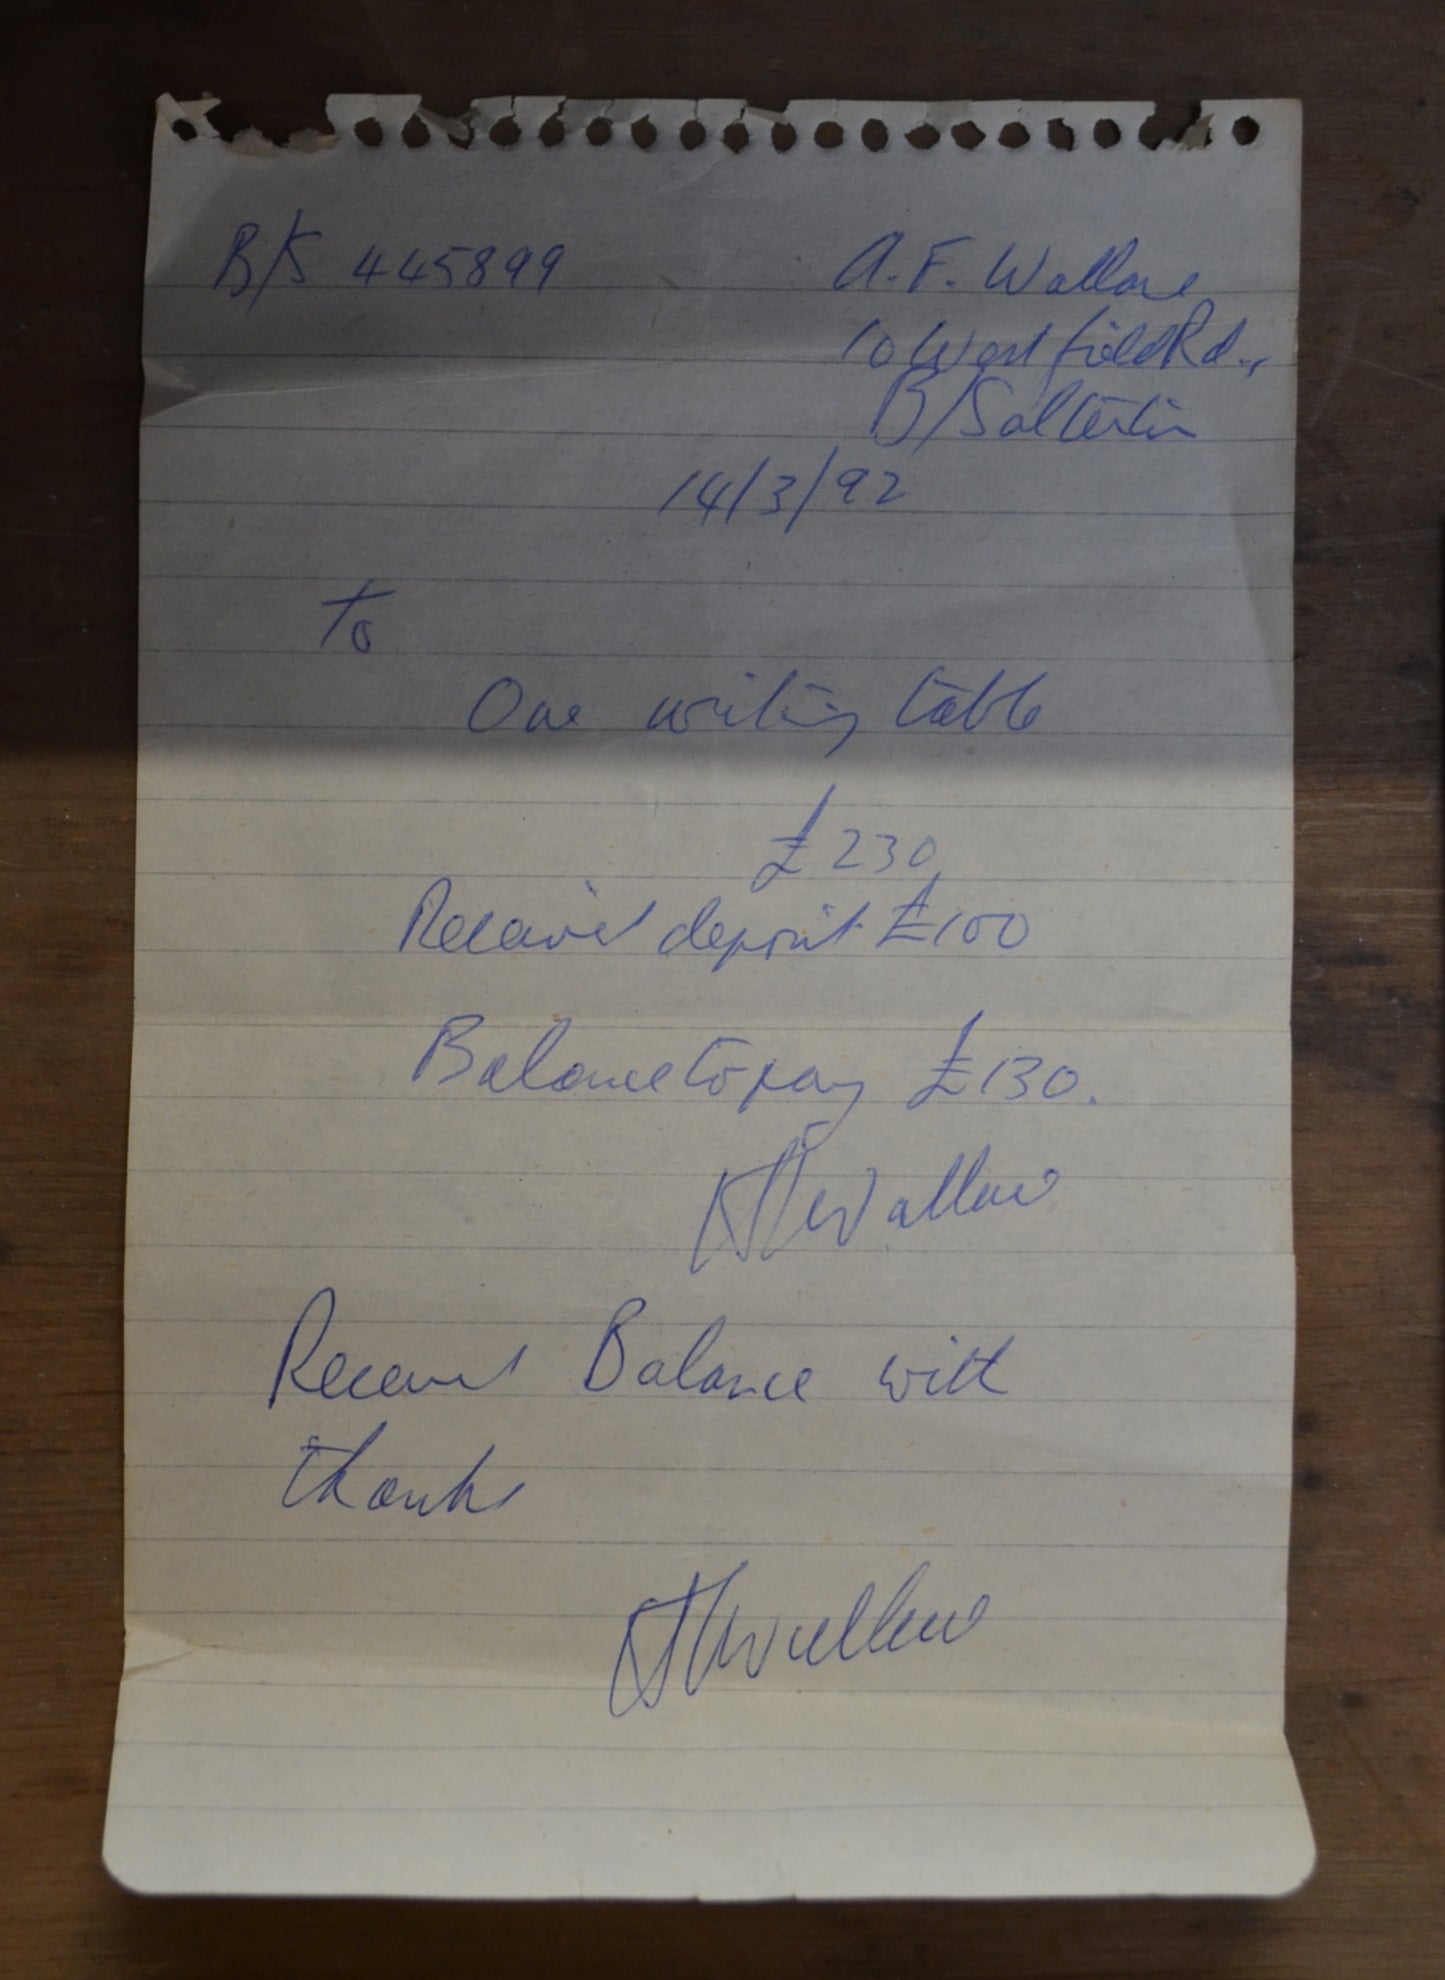 B/S 445899
A. F. Wallace
10 Westfield Rd.,
B/Salterton
14/3/92
To
One writing table
£230
Received deposit £100
Balance to pay £130.
AFWallace
Received Balance with
thanks
AFWallace